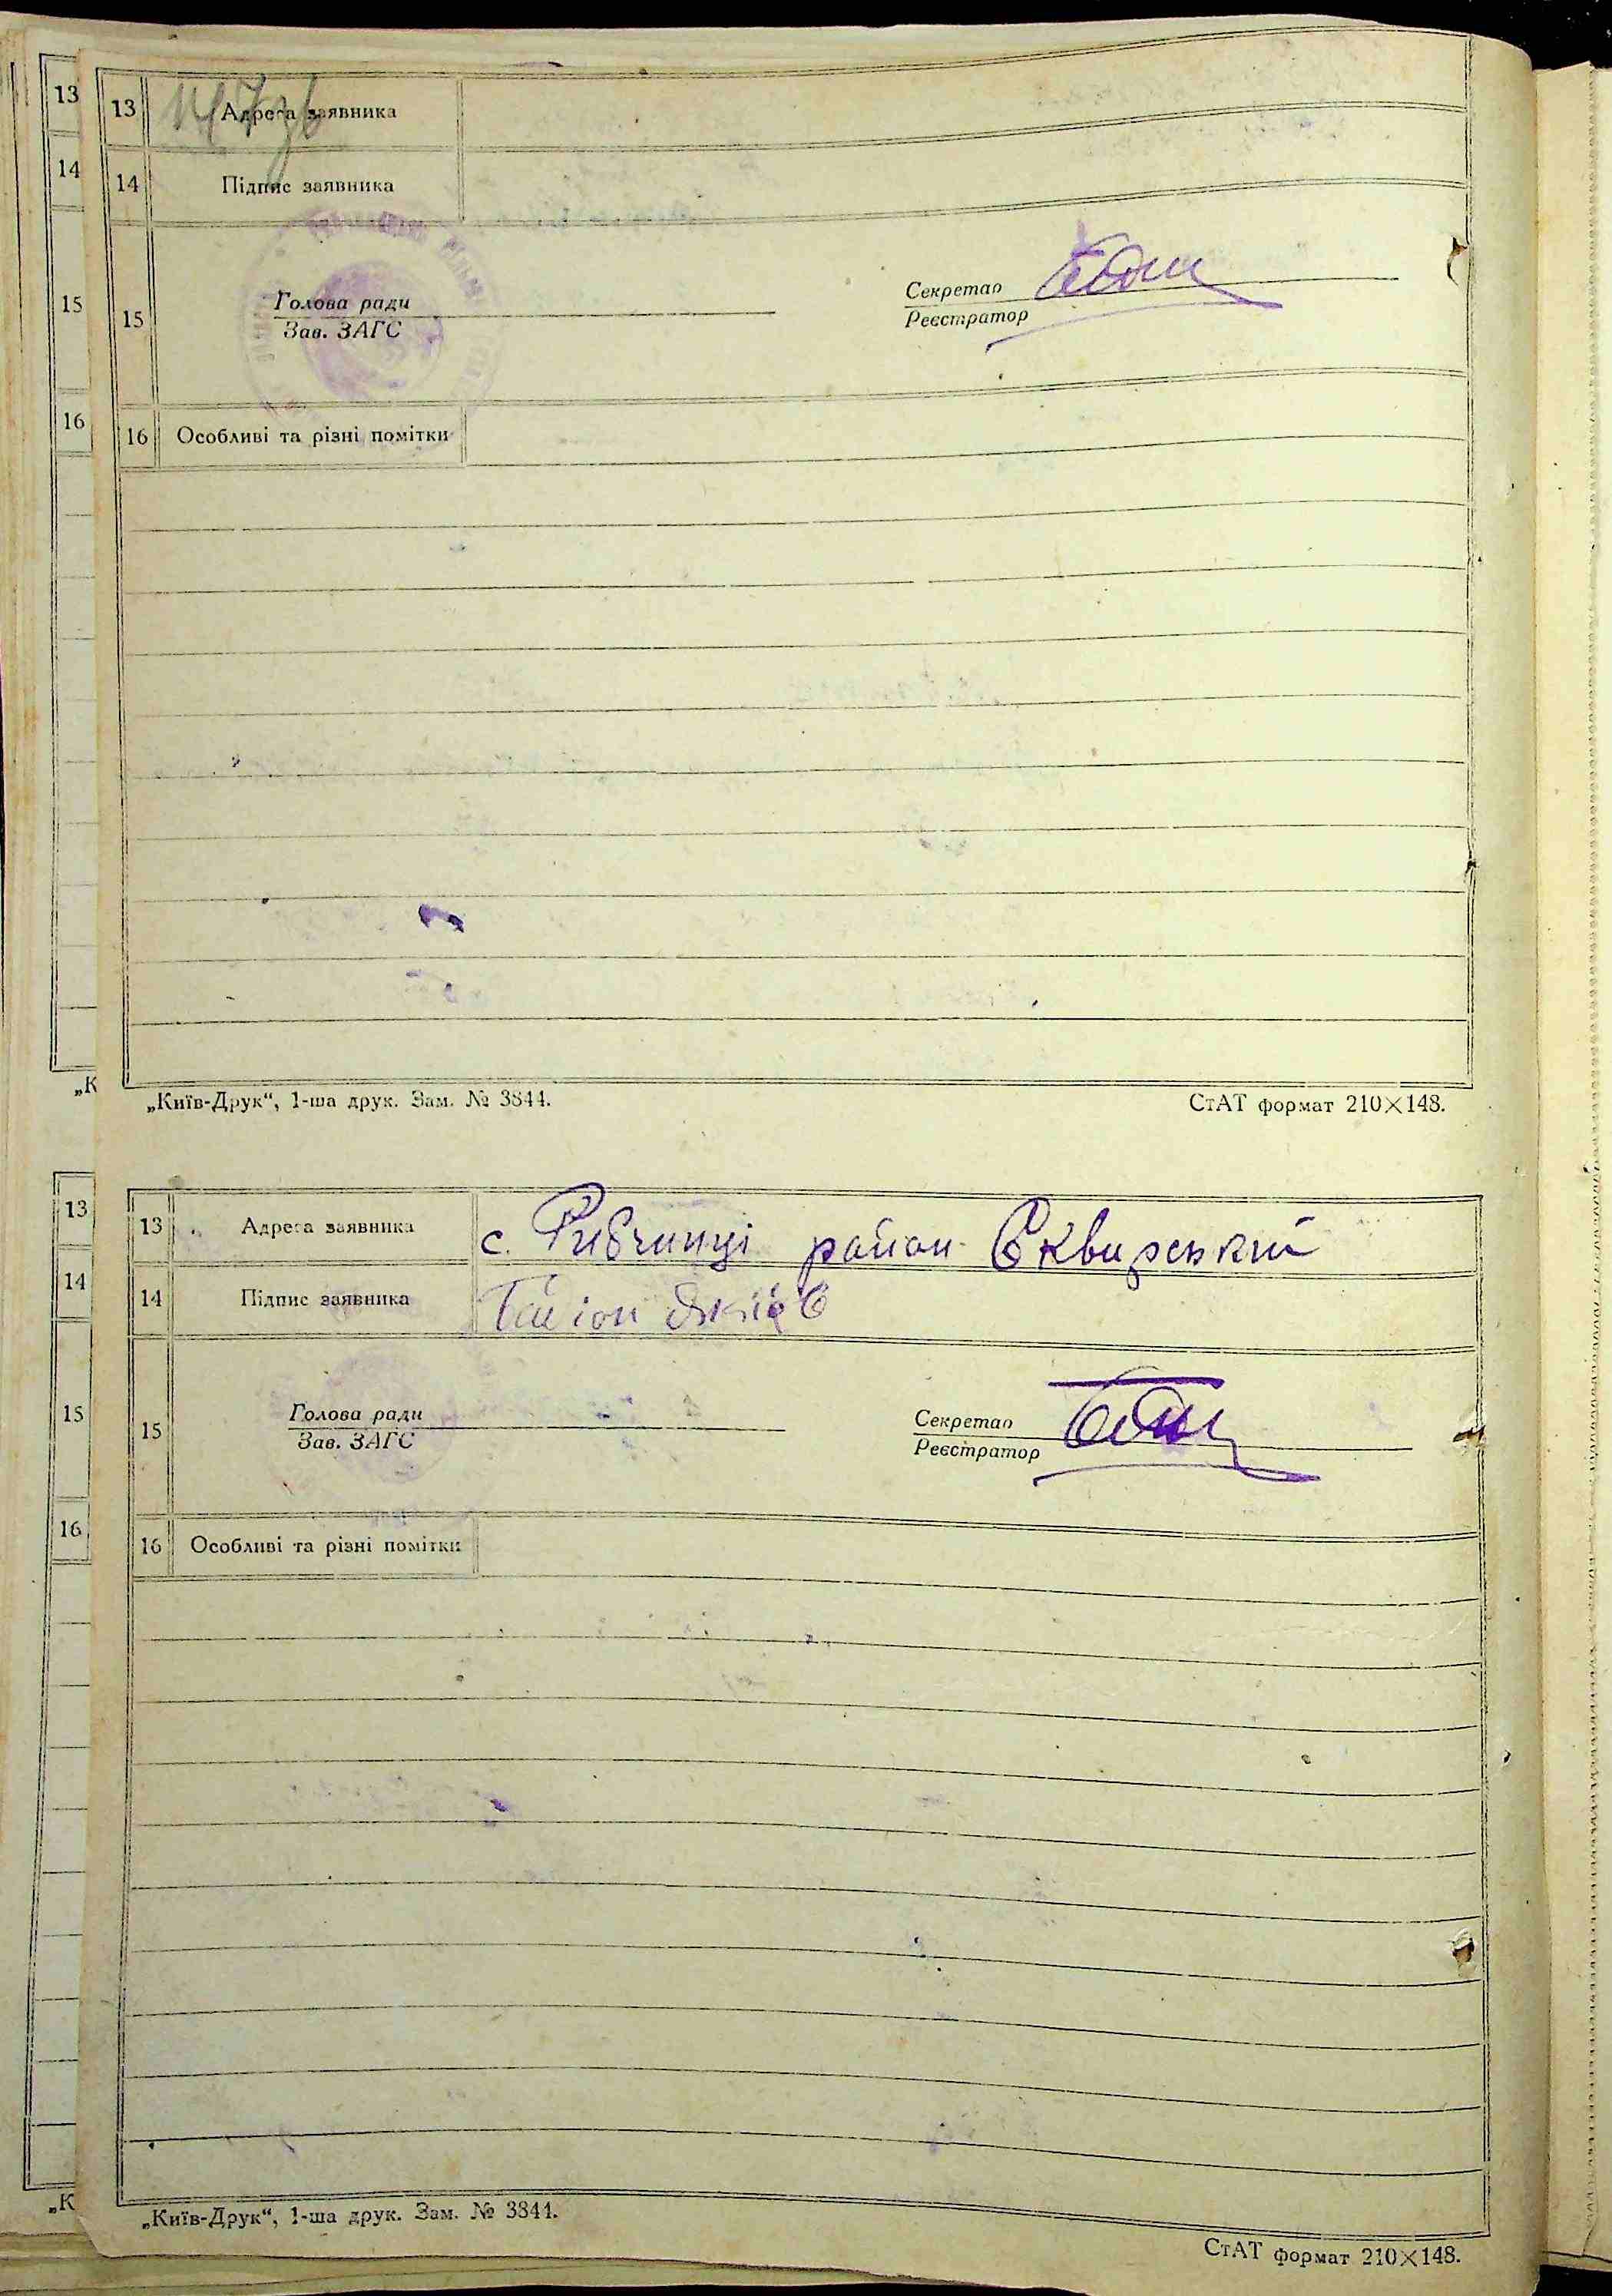 13
14
15
16
13 Адреса заявника
14 Підпис заявника
15 Голова ради
Зав. ЗАГС
Секретар
Реєстратор
16 Особливі та різні помітки
„К
„Київ-Друк“, 1-ша друк. Зам. № 3844.
СтАТ формат 210×148.
13
14
15
16
13 Адреса заявника с. Рибчинці район Сквирський
14 Підпис заявника
15 Голова ради
Зав. ЗАГС
Секретар
Реєстратор
16 Особливі та різні помітки
„К
„Київ-Друк“, 1-ша друк. Зам. № 3844.
СтАТ формат 210×148.